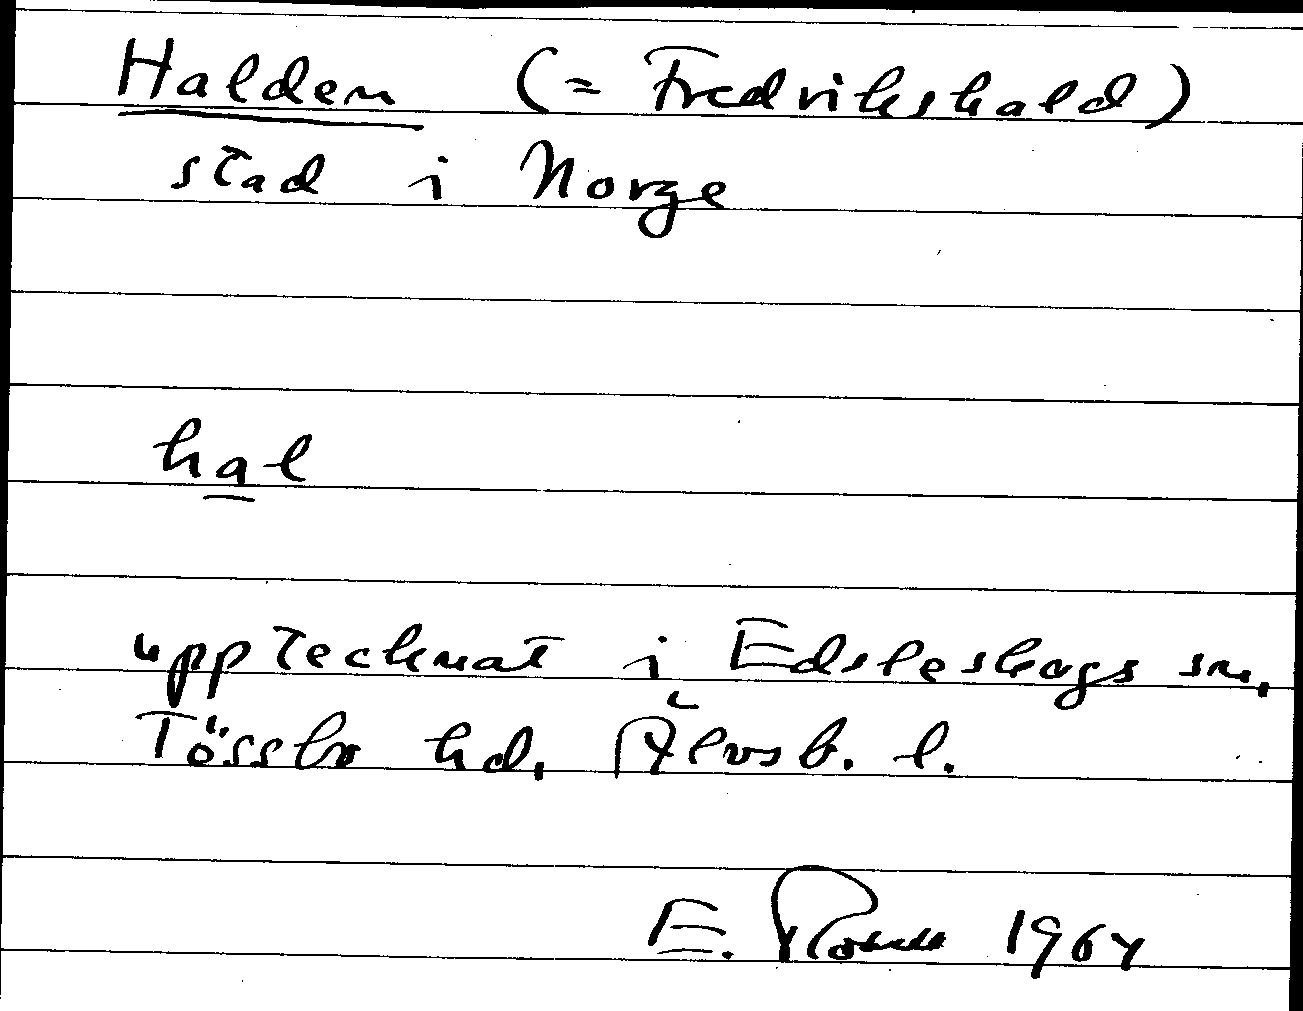 Halden (= Fredrikshald)
stad i Norge
hal
upptecknat i Edsleskogs sn,
Tössbo hd, Älvsb. l.
E. 1964